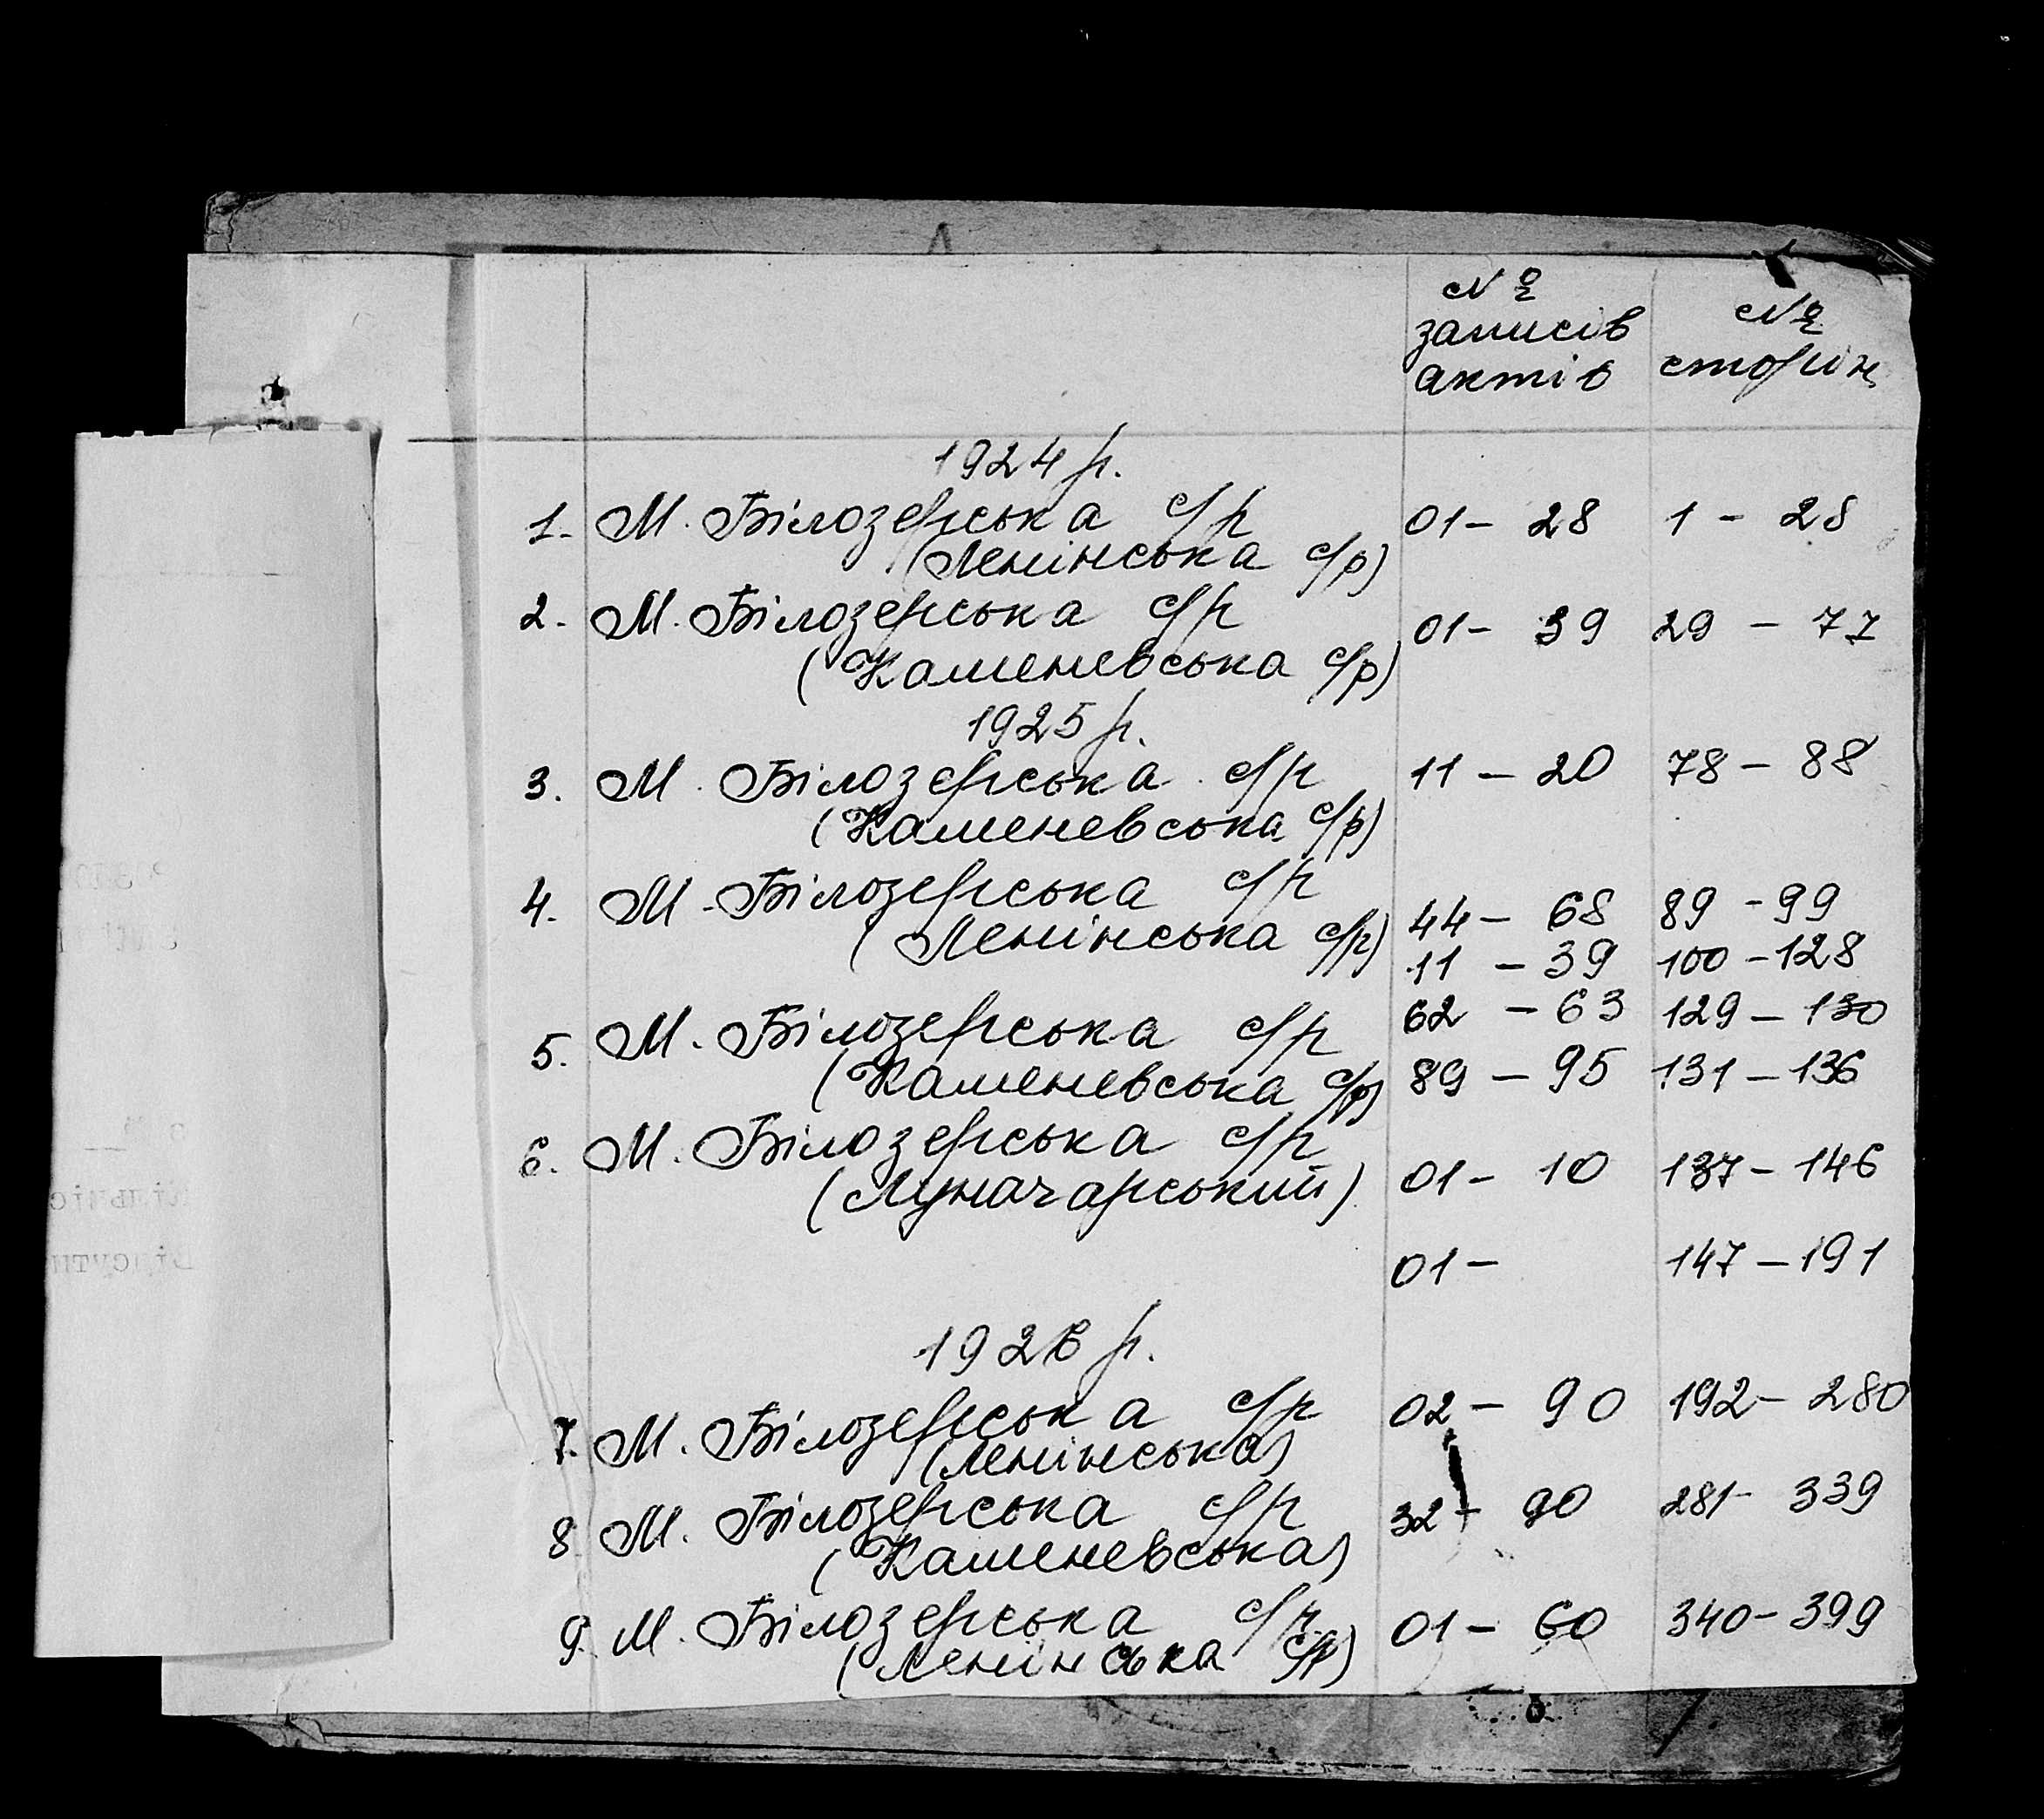 № №
записів сторін
актів
1924 р.
1. М. Білозерська с/р 01 - 28 1 - 28
(Ленінська с/р)
2. М. Білозерська с/р 01 - 39 29 - 77
(Каменевська с/р)
1925 р.
3. М. Білозерська с/р 11 - 20 78 - 88
(Каменевська с/р)
4. М. Білозерська с/р 44 - 68 89 - 99
(Ленінська с/р) 11 - 39 100 - 128
62 - 63 129 - 130
5. М. Білозерська с/р
(Каменевська с/р) 89 - 95 131 - 136
6. М. Білозерська с/р 01 - 10 137 - 146
(Луначарський)
01 - 147 - 191
1926 р.
7. М. Білозерська с/р 02 - 90 192 - 280
(Ленінська)
8. М. Білозерська с/р 32 - 90 281 - 339
(Каменевська)
9. М. Білозерська с/р 01 - 60 340 - 399
(Ленінська с/р)